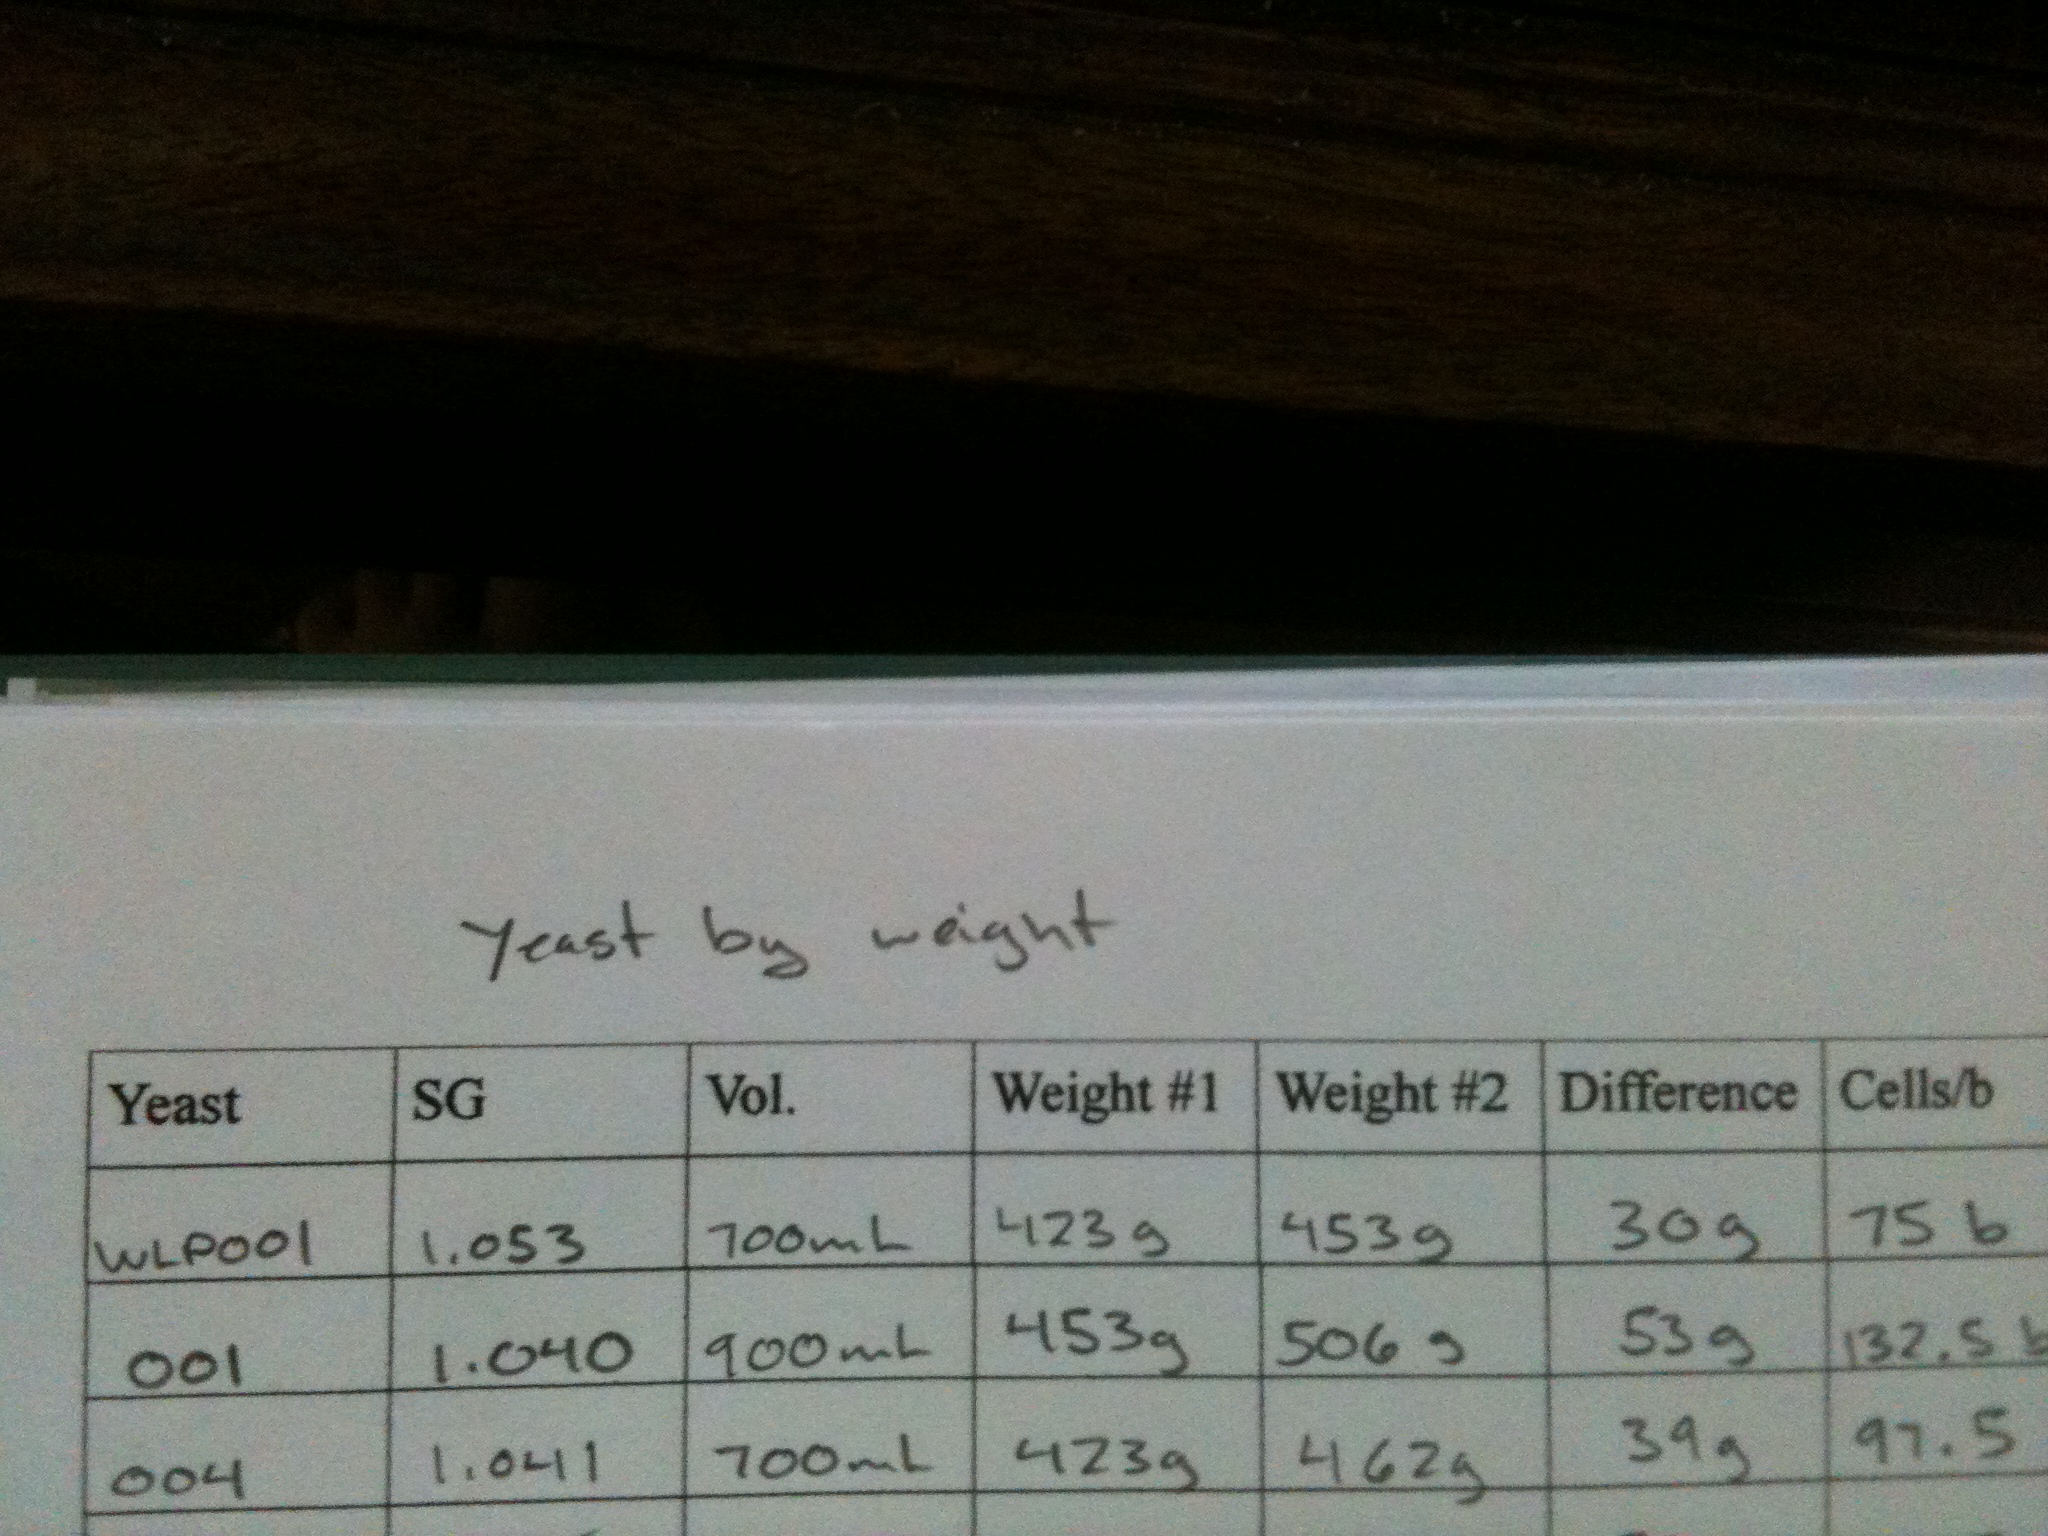 Yeast by weight
Yeast SG Vol. Weight #1 Weight #2 Difference Cells/b
WLP001 1.053 700mL 423g 453g 30g 75 b
001 1.040 900mL 453g 506g 53g 132.5 b
004 1.041 700mL 423g 462g 39g 97.5